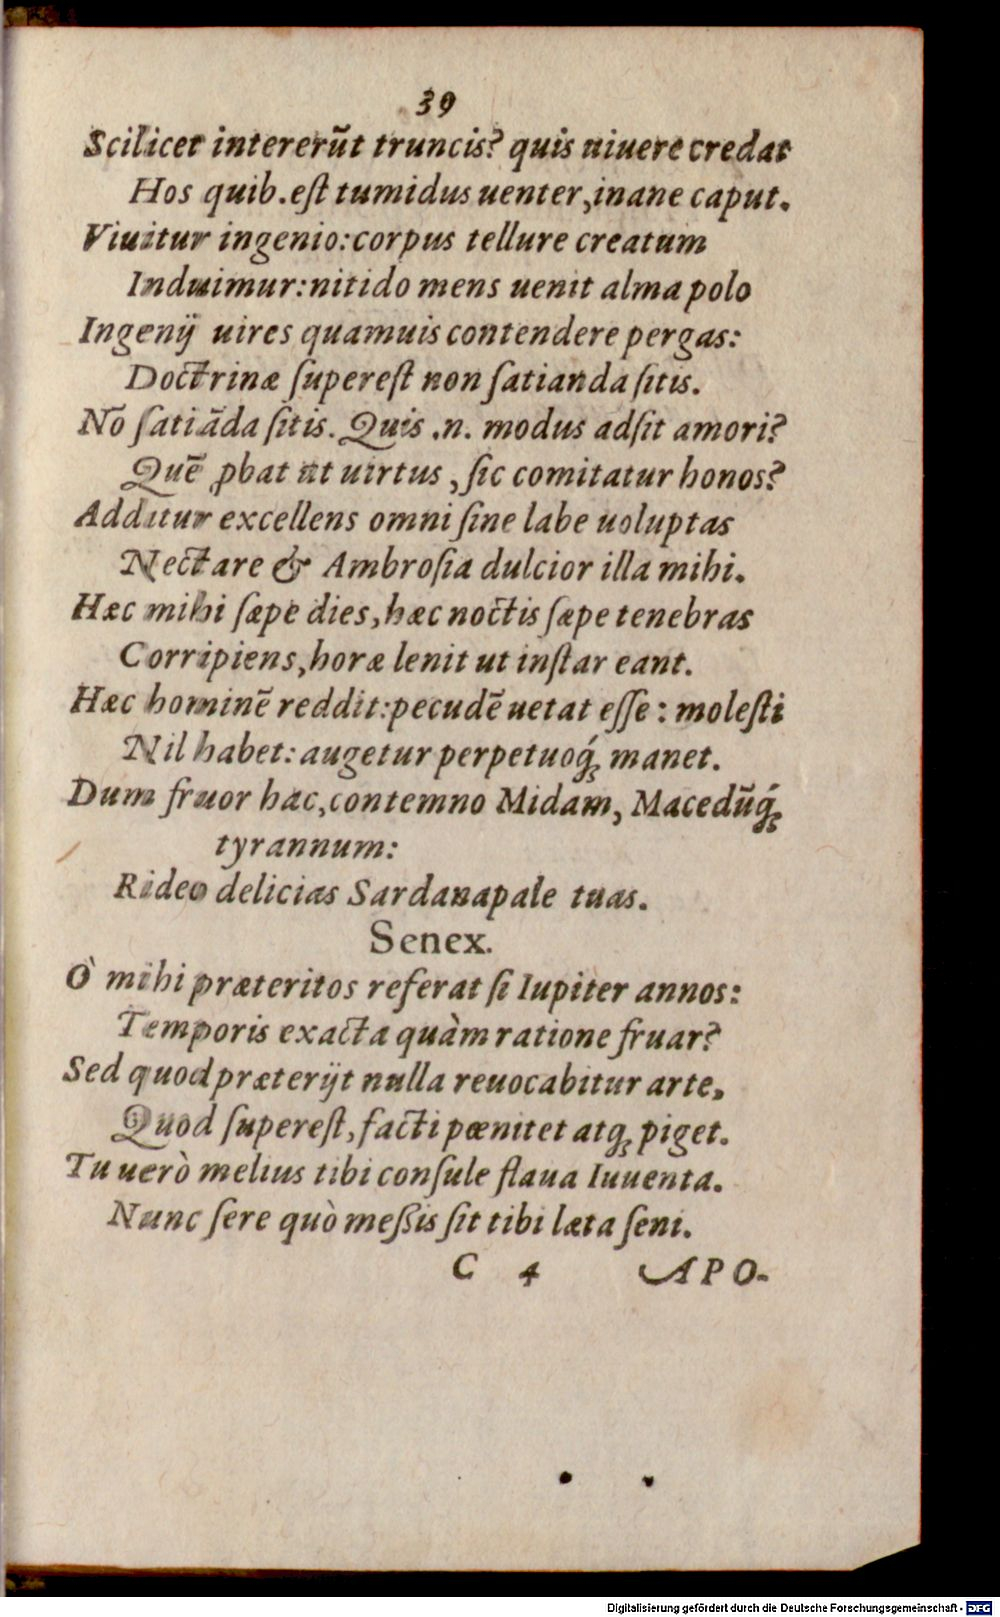 39
Scilicet intererũt truncis? quis uiuere credat
Hos quib. eſt tumidus uenter, inane caput.
Viuitur ingenio: corpus tellure creatum
Induimur: nitido mens uenit alma polo
Ingenij uires quamuis contendere pergas:
Doctrinæ ſupereſt non ſatianda ſitis.
Nõ ſatiãda ſitis. Quis .n. modus adſit amori?
Quẽ ꝓbat ut uirtus, ſic comitatur honos?
Additur excellens omni ſine labe uoluptas
Nectare & Ambroſia dulcior illa mihi.
Hæc mihi ſæpe dies, hæc noctis ſæpe tenebras
Corripiens, horæ lenit ut inſtar eant.
Hæc hominẽ reddit: pecudẽ uetat eſſe: moleſti
Nil habet: augetur perpetuoq́ꝫ manet.
Dum fruor hac, contemno Midam, Macedũq́ꝫ
tyrannum:
Rideo delicias Sardanapale tuas.
Senex.
Ò mihi præteritos referat ſi Iupiter annos:
Temporis exacta quàm ratione fruar?
Sed quod præterijt nulla reuocabitur arte,
Quod ſupereſt, facti pœnitet atqꝫ piget.
Tu uerò melius tibi conſule flaua Iuuenta.
Nunc ſere quò meßis ſit tibi læta ſeni.
C 4 APO-
Digitalisierung gefördert durch die Deutsche Forschungsgemeinschaft - DFG